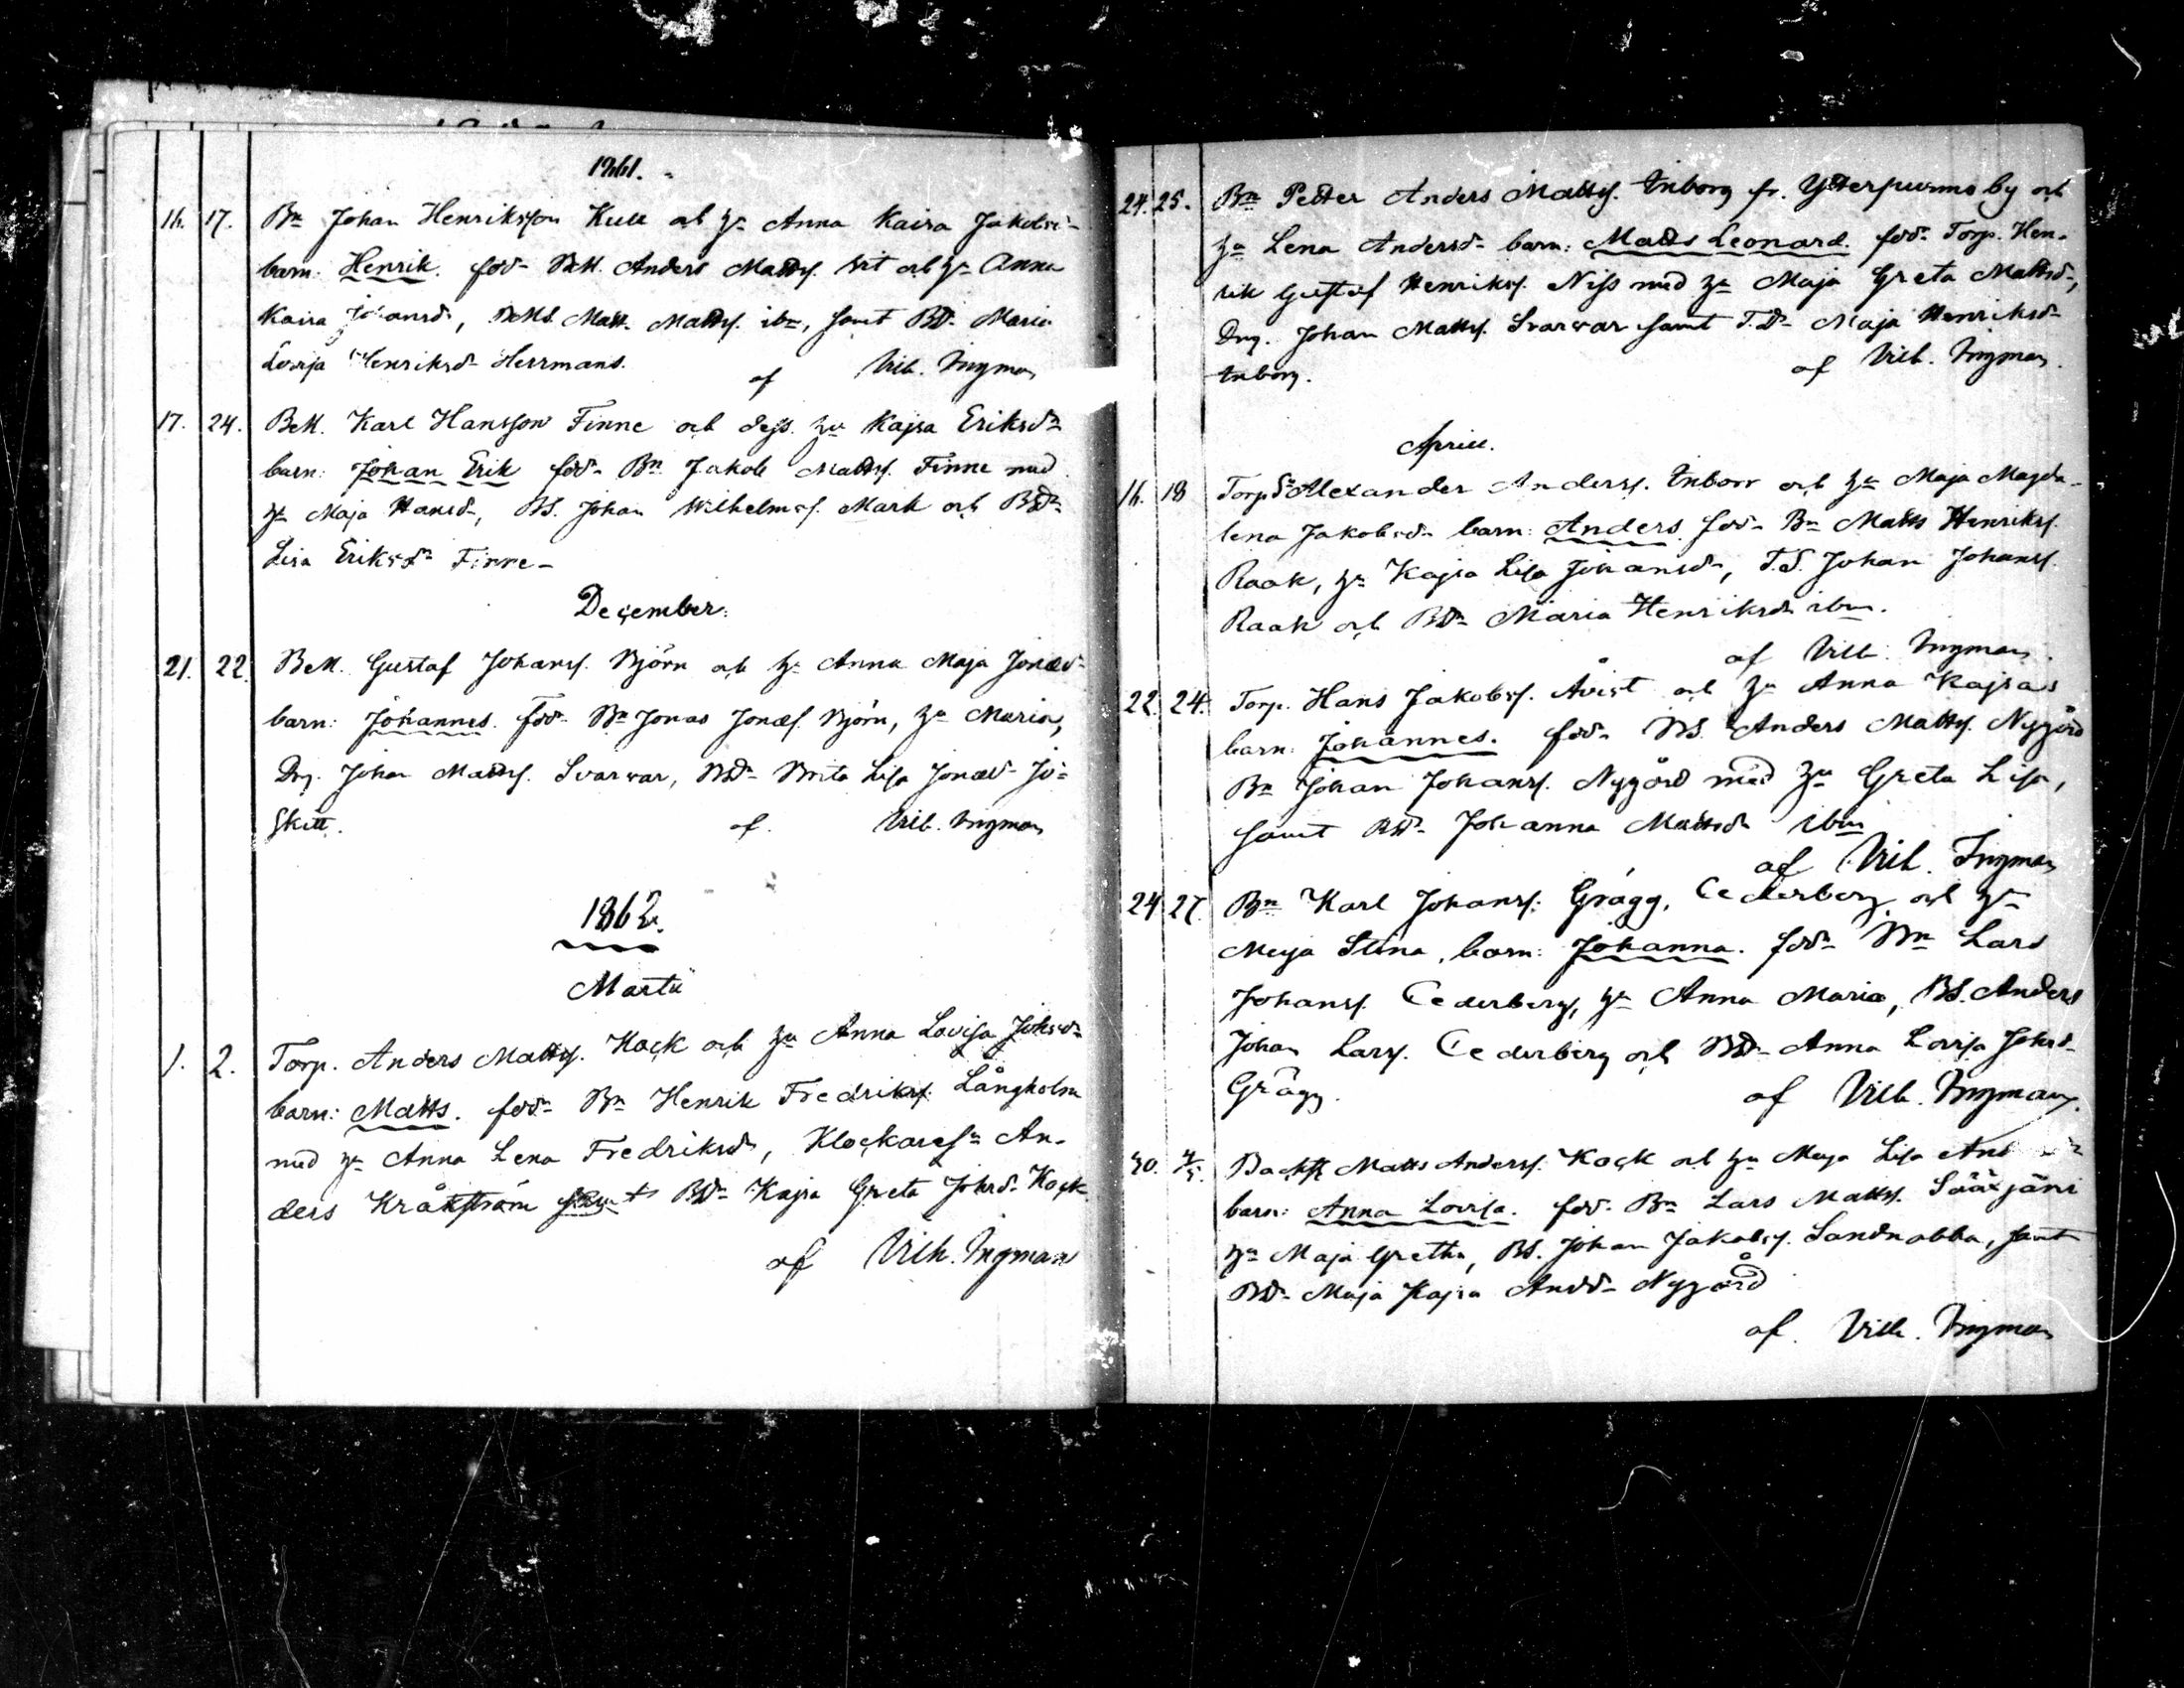 1861.
16. 17. Bn Johan Henriksson Kull och hu Anna Kaisa Jakobsd-
barn: Henrik. fad- BM. Anders Mattss. och hu Anna
Kaisa Johansd-, Matt. Mattss. ibm, samt BD- Maria
Lovisa Henriksd- Herrmans.
af Vilh. Ingman
17. 24. BM. Karl Hansson Finne och dess hu Kajsa Eriksd-
barn: Johan Erik fad- Bn Jakob Mattss. Finne med
hu Maja Hansd-, BS. Johan Wilhelmss. Mark och BD-
Lisa Eriksd- Finne-
December.
21. 22. BM. Gustaf Johanss. Björn och hu Anna Maja Jonasd-
barn: Johannes. fad- Bn Jonas Jonass. Björn, hu Maria,
Dng. Johan Mattss. Svarvar, BD- Brita Lisa Jonasd- Jo-
skitt. af. Vilh. Ingman
1862.
Martii
1. 2. Torp. Anders Mattss. Kock och hu Anna Lovisa Johsd-
barn: Matts. fad- Bn Henrik Fredrikss. Långholm
med hu Anna Lena Fredriksd-, Klockaress- An-
ders Kråkström samt BD- Kajsa Greta Johsd- Kock
af Vilh. Ingman
24. 25. Bn Petter Anders Mattss. Enborg fr. Ytterpurmo by och
hu Lena Andersd- barn: Matts Leonard. fad- Torp. Hen-
rik Gustaf Henrikss. Niss med hu Maja Greta Mattsd-,
Dng. Johan Mattss. Svarvar samt T.D- Maja Henriksd-
Enborg. af Vilh. Ingman.
Aprill.
16. 18 Torp.Sn Alexander Anderss. Enborr och hu Maja Magda-
lena Jakobsd- barn: Anders. fad- Bn Matts Henrikss.
Raak, hu Kajsa Lisa Johansd-, T.S. Johan Johanss.
Raak och BD- Maria Henriksd- ibm.
af Vilh. Ingman.
22. 24. Torp. Hans Jakobss. Åvist och hu Anna Kajsas
barn: Johannes. fad- BS. Anders Mattss. Nygård
Bn Johan Johanss. Nygård med hu Greta Lisa,
samt BD- Johanna Mattsd- ibm
af Vilh. Ingman
24 27. Bn Karl Johanss: Grägg, Cederberg och hu
Maja Stina, barn: Johanna. fad- Bn Lars
Johanss. Cederberg, hu Anna Maria, BS. Anders
Johan Larss. Cederberg och BD- Anna Lovisa Johsd-
Grägg. af Vilh. Ingman.
30. 4/5. Backst. Matts Anderss. Kock och hu Maja Lisa And
barn: Anna Lovisa. fad- Bn Lars Mattss. Sääxjärvi
hu Maja Gretha, BS. Johan Jakobss. Sandnabba, samt
BD- Maja Kajsa Andd- Nygård
af. Vilh. Ingman